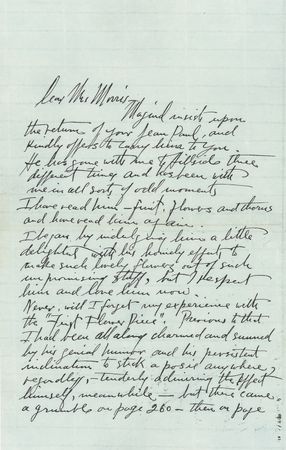 Dear Mrs Morris,
Maginel insists upon
the return of your Jean Paul, and
kindly offers to carry him to you.
He has gone with me to Hillside three
different times and has been with
me in all sorts of odd moments
I have read him – fruit, flowers and thorns
and have read him again.
I began by indulging him a little
delighted with his homely efforts to
make such lovely flowers out of such
unpromising stuff, but I respect
him and love him now.
Never will I forget my experience with
the "First Flower Piece". Previous to that
I had been all along charmed and
by his genial humor and his persistent
inclination to stick a posie anywhere,
regardless, – tenderly admiring the effect
himself, meanwhile – but there came
a grumble on page 260 – then on page